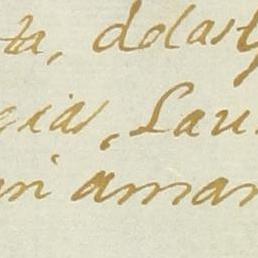 ta, delas
cias, Lau
ni aman